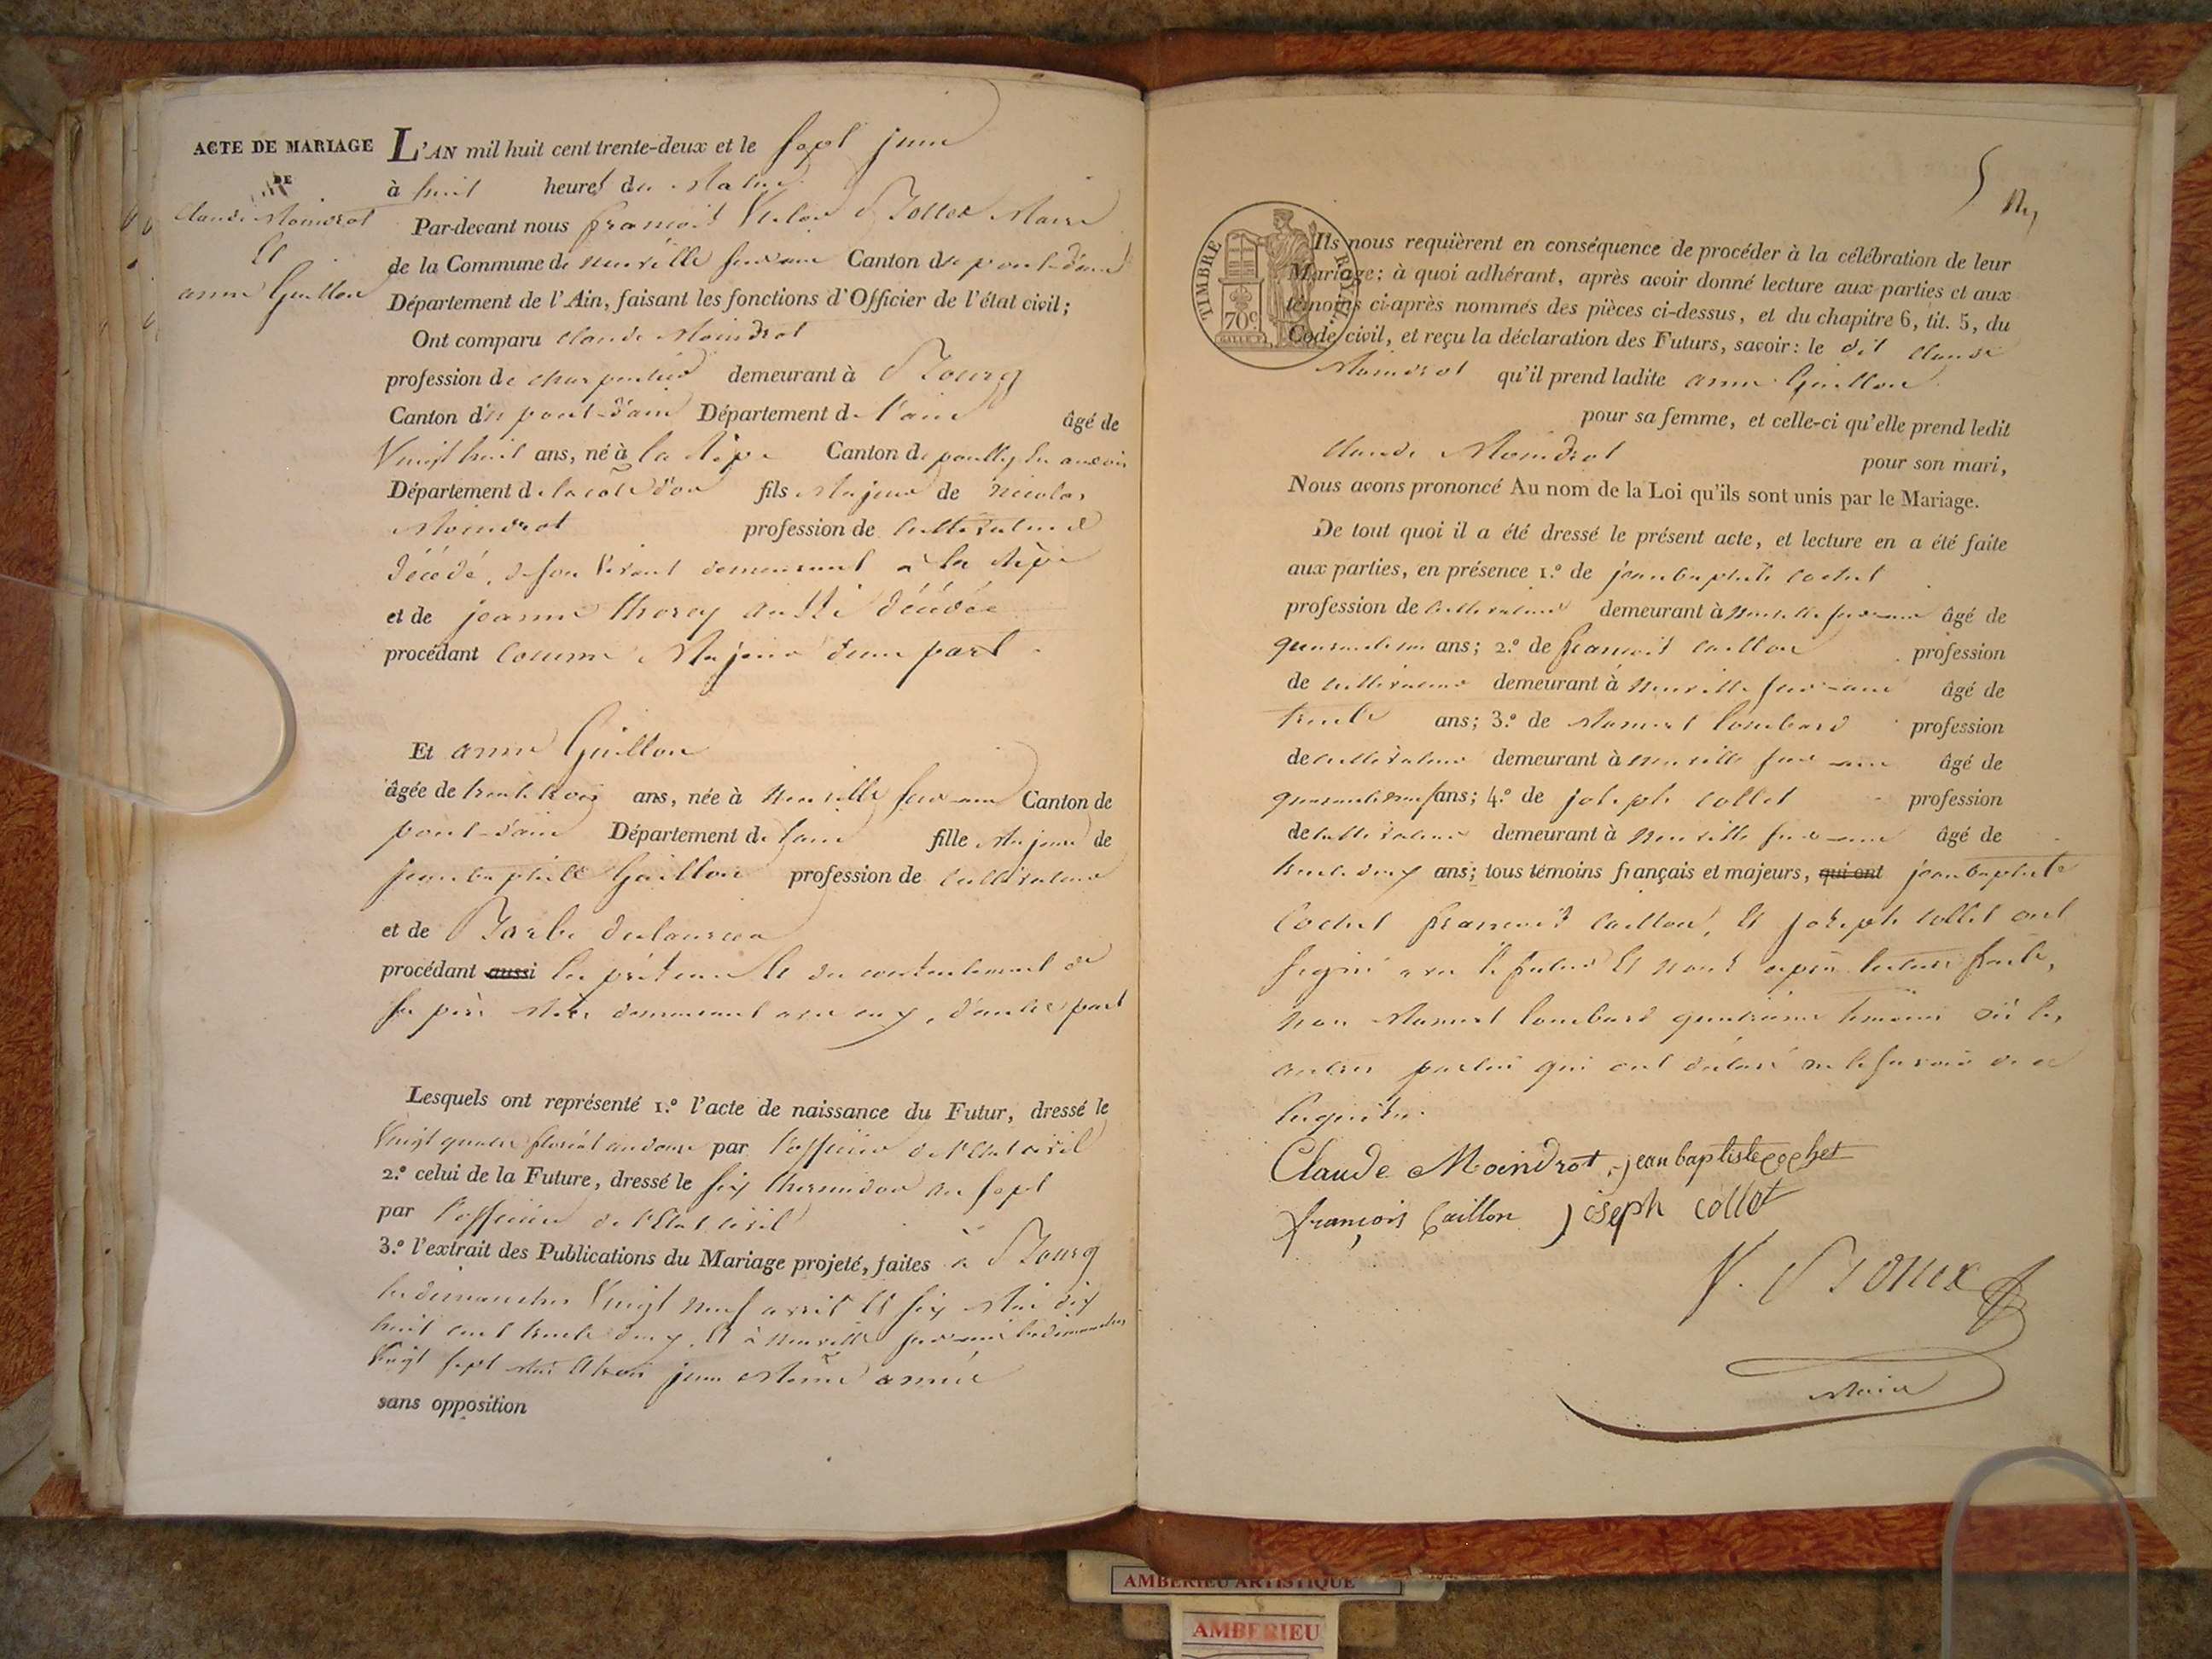 ACTE DE MARIAGE
DE
Claude Moindrot
Et
anne Guillon
L'AN mil huit cent trente-deux et le sept juin
à huit heures du Matin
Par-devant nous françois Maire
de la Commune de neuville sur ain Canton de pont-d'ain
Département de l'Ain, faisant les fonctions d'Officier de l'état civil;
Ont comparu claude Moindrot
profession de charpentier demeurant à Bourg
Canton de pont-d'ain Département de l'ain âgé de
Vingt huit ans, né à la Canton de pouilly en auxois
Département de la cote d'or fils Majeur de nicolas
Moindrot profession de cultivateur
décédé, de son Vivant demeurant à la
et de jeanne thorey aussi décédée
procédant comme Majeur d'une part
Et anne Guillon
âgée de trente trois ans, née à neuville sur ain Canton de
pont-d'ain Département de l'ain fille Majeure de
jean baptiste Guillon profession de cultivateur
et de Barbe
procédant aussi les présence et du consentement de
ses père Mère demeurant avec eux, d'autre part
Lesquels ont représenté 1.º l'acte de naissance du Futur, dressé le
Vingt quatre floréal an douze par l'officier de l'Etat civil
2.º celui de la Future, dressé le six thermidor an sept
par l'officier de l'Etat civil
3.º l'extrait des Publications du Mariage projeté, faites à Bourg
les dimanches Vingt neuf avril et six Mai dix
huit cent trente deux, et à neuville sur ain les dimanches
Vingt sept Mai et trois juin Même année
sans opposition
TIMBRE ROYAL
70c
Ils nous requièrent en conséquence de procéder à la célébration de leur
Mariage: à quoi adhérant, après avoir donné lecture aux parties et aux
témoins ci-après nommés des pièces ci-dessus, et du chapitre 6, tit. 5, du
Code civil, et reçu la déclaration des Futurs, savoir: le dit claude
Moindrot qu'il prend ladite anne Guillon
pour sa femme, et celle-ci qu'elle prend ledit
claude Moindrot pour son mari,
Nous avons prononcé Au nom de la Loi qu'ils sont unis par le Mariage.
De tout quoi il a été dressé le présent acte, et lecture en a été faite
aux parties, en présence 1.º de jean baptiste cochet
profession de cultivateur demeurant à neuville sur ain âgé de
ans; 2.º de françois caillon profession
de cultivateur demeurant à neuville sur ain âgé de
trente ans; 3.º de lombard profession
de cultivateur demeurant à neuville sur ain âgé de
ans; 4.º de joseph collet profession
de cultivateur demeurant à neuville sur ain âgé de
trente deux ans; tous témoins français et majeurs, qui ont jean baptiste
cochet françois caillon, et joseph collet ont
signé avec le futur et nous après lecture faite,
non lombard témoin ni les
autres parties qui ont déclaré ne le savoir de ce
enquis.
Claude Moindrot, jean baptiste cochet
françois Caillon joseph collet
Maire
AMBERIEU ARTISTIQUE
AMBERIEU